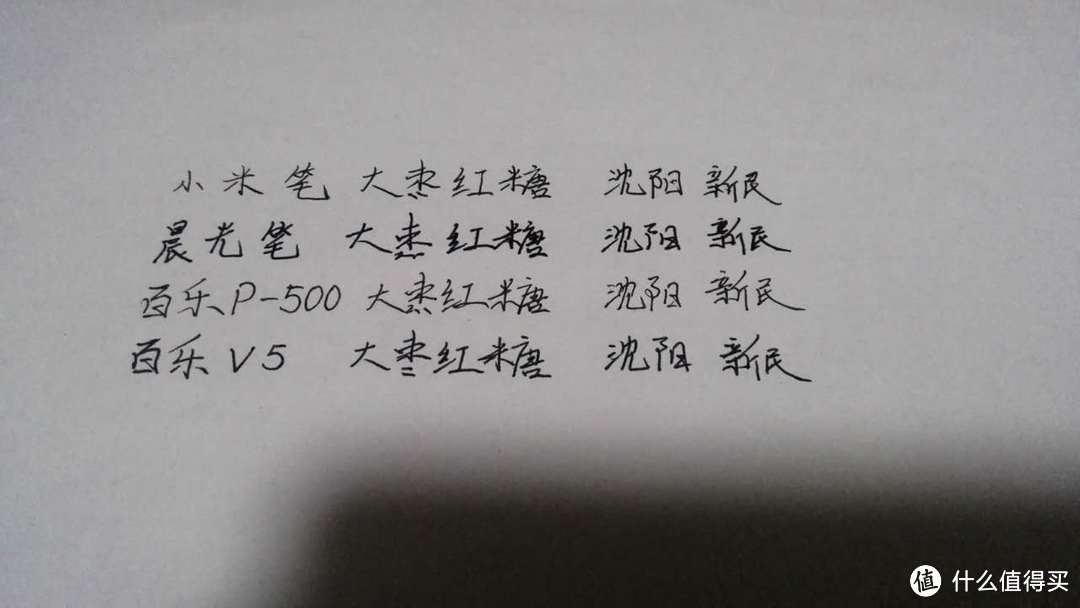 小米笔 大枣红糖 沈阳 新民
晨光笔 大枣红糖 沈阳 新民
百乐P-500 大枣红糖 沈阳 新民
百乐V5 大枣红糖 沈阳 新民
值 什么值得买